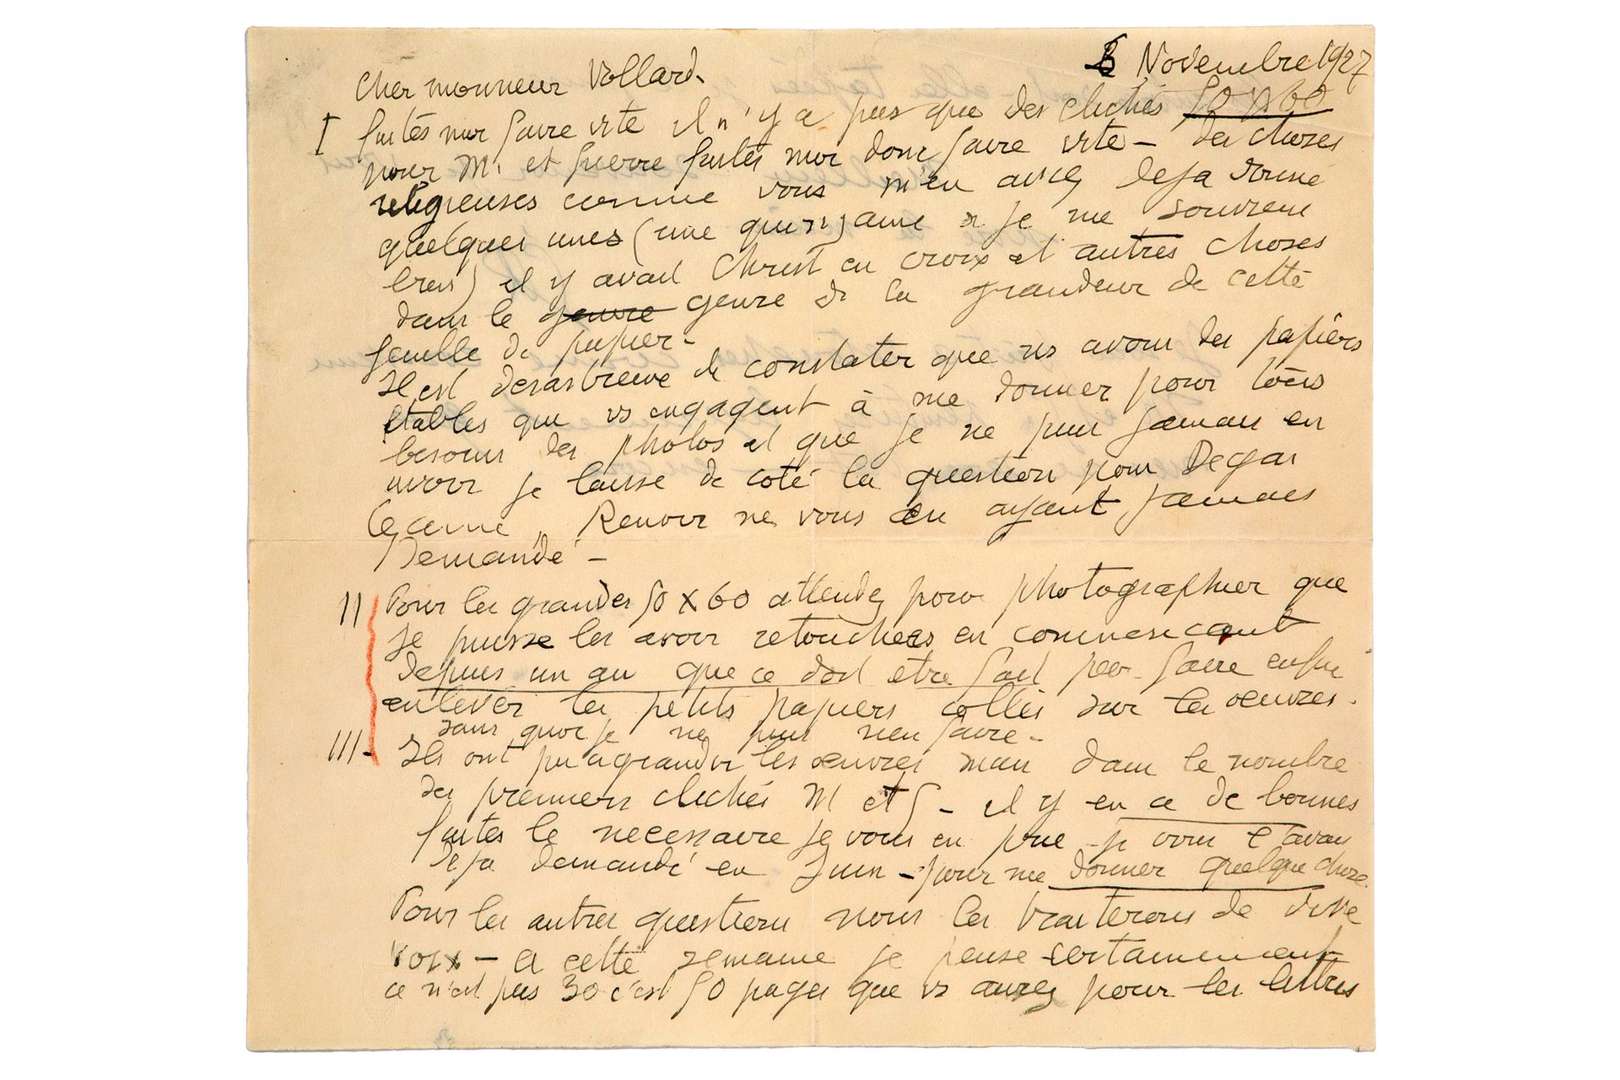 Novembre 1927
Cher monsieur Vollard.
I faites moi faire vite il n'y a pas que des clichés 50 x 60
pour M. et Guerre faites moi donc faire vite – des choses
religieuses comme vous m'en avez deja donné
quelques unes (une quinzaine si je me souviens
bien) il y avait Christ en croix et autres choses
dans le genre genre de la grandeur de cette
feuille de papier –
Il est desastreux de constater que ns avons des papiers
que vs engagent à me donner pour
besoins des photos et que je ne puis jamais en
avoir je laisse de coté la question pour Degas
Cezanne, Renoir ne vous en ayant jamais
Demandé –
II Pour les grandes 50 x 60 attendez pour photographier que
je puisse les avoir retouchées en commencant
Depuis un an que ce doit etre fait faire enfin
enlever les petits papiers collés sur les oeuvres.
sans quoi je ne puis rien faire –
III – Ils ont pu agrandir les oeuvres mais dans le nombre
des premiers clichés M et G – il y en a de bonnes
faites le necessaire je vous en prie – je vous l'avais
Deja demandé en Juin – pour me donner quelque chose.
Pour les autres questions nous les traiterons de vive
voix – a cette semaine je pense certainement
ce n'est pas 30 c'est 50 pages que vs aurez pour les lettres